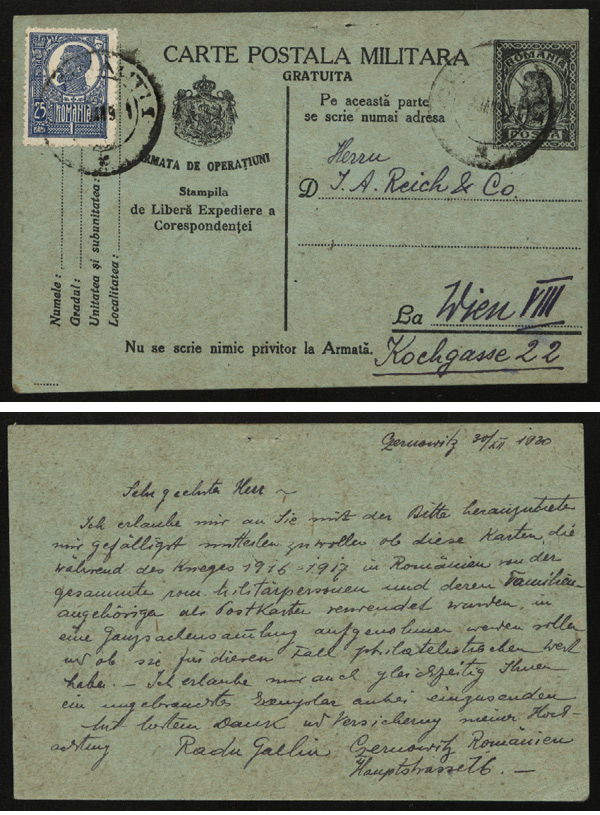 CARTE POSTALA MILITARA
GRATUITA
25 BANI
ROMANIA
1
ROMANIA
POSTA
Pe această parte
se scrie numai adresa
ARMATA DE OPERAȚIUNI
Stampila
de Liberă Expediere a
Corespondenței
Numele :
Gradul :
Unitatea și subunitatea :
Localitatea :
Herrn
D J. A. Reich & Co.
La Wien VIII
Kochgasse 22
Nu se scrie nimic privitor la Armată.
Czernowitz 30/XII 1920
Sehr geehrter Herr
Ich erlaube mir an Sie mit der Bitte heranzutreten
mir gefälligst mitteilen zu wollen ob diese Karten, die
während des Krieges 1916-1917 in Rumänien von der
gesammte rom. Militärpersonen und deren Familien-
angehörigen als Postkarten verwendet wurden, in
eine Ganzsachensammlung aufgenommen werden sollen
ud ob sie für diesen Fall philatelistischen Wert
haben. – Ich erlaube mir auch gleichzeitig Ihnen
ein ungebrauchtes Exemplar anbei einzusenden
Mit bestem Dank ud Versicherung meiner Hoch-
achtung Radu Gallin Czernowitz Românien
Hauptstrasse 16. –